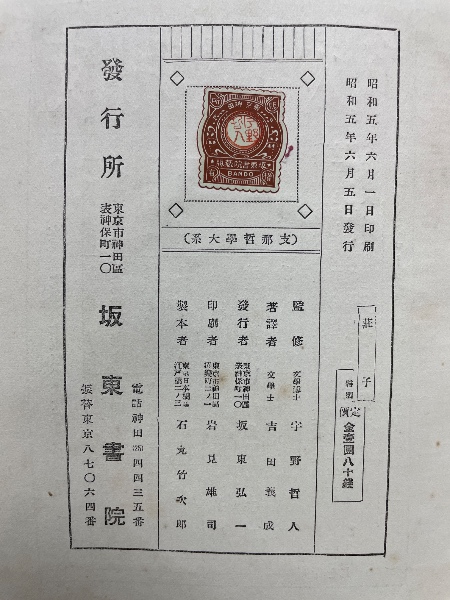 昭和五年六月一日印刷
昭和五年六月五日發行
莊子
定價 金壹圓八十錢
BANDO
(支那哲學大系)
監修 文學博士 宇野哲人
著譯者 文學士 吉田義成
發行者 東京市神田區表神保町一〇 坂東弘一
印刷者 岩見雄司
製本者 石丸竹次郎
發行所 東京市神田區表神保町一〇 坂東書院
電話神田(25)四四三五番
振替東京八七〇六四番